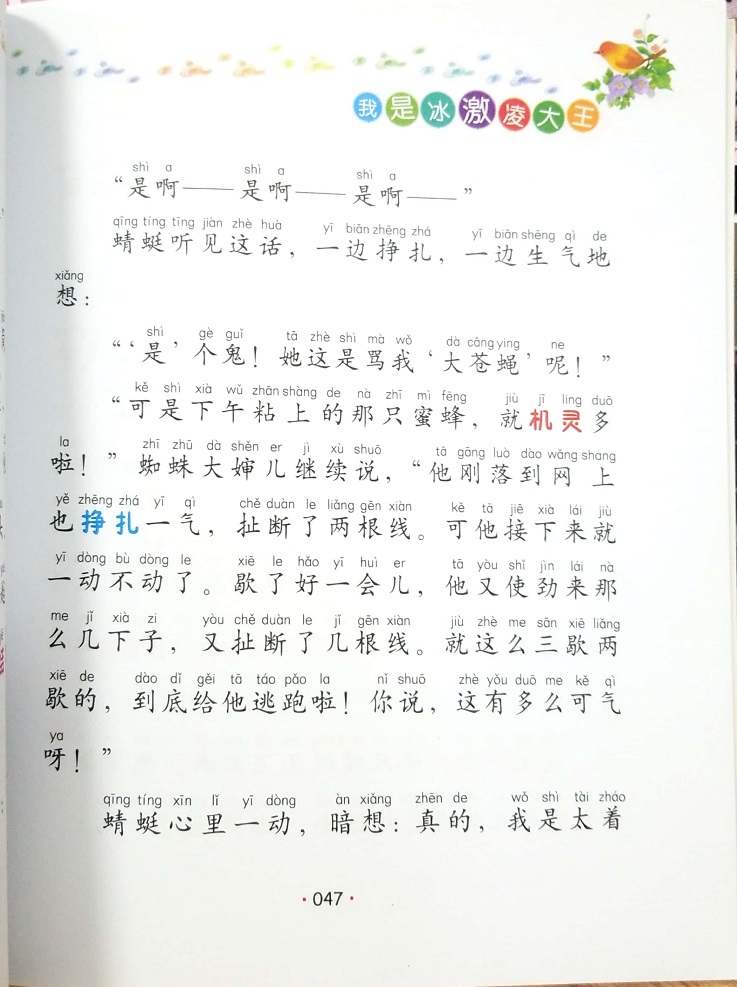 我是冰激凌大王
shì a shì a shì a
“是啊——是啊——是啊——”
qīng tíng tīng jiàn zhè huà yī biān zhēng zhá yī biān shēng qì de
蜻蜓听见这话，一边挣扎，一边生气地
xiǎng
想：
shì gè guǐ tā zhè shì mà wǒ dà cāng ying ne
“‘是’个鬼！她这是骂我‘大苍蝇’呢！”
kě shì xià wǔ zhān shàng de nà zhī mì fēng jiù jī ling duō
“可是下午粘上的那只蜜蜂，就机灵多
la zhī zhū dà shěn er jì xù shuō tā gāng luò dào wǎng shang
啦！”蜘蛛大婶儿继续说，“他刚落到网上
yě zhēng zhá yī qì chě duàn le liǎng gēn xiàn kě tā jiē xià lái jiù
也挣扎一气，扯断了两根线。可他接下来就
yī dòng bù dòng le xiē le hǎo yī huì er tā yòu shǐ jìn lái nà
一动不动了。歇了好一会儿，他又使劲来那
me jǐ xià zi yòu chě duàn le jǐ gēn xiàn jiù zhè me sān xiē liǎng
么几下子，又扯断了几根线。就这么三歇两
xiē de dào dǐ gěi tā táo pǎo la nǐ shuō zhè yǒu duō me kě qì
歇的，到底给他逃跑啦！你说，这有多么可气
ya
呀！”
qīng tíng xīn lǐ yī dòng àn xiǎng zhēn de wǒ shì tài zháo
蜻蜓心里一动，暗想：真的，我是太着
·047·